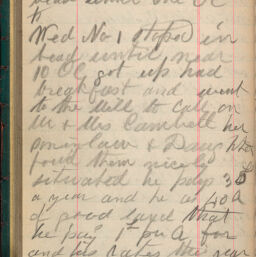 Wed No. 1 stoped in
bead until near
10 OC, got up had
breakfast and went
to the Mill to call on
Mr & Mrs Cambell her
& Daug
found them nicely
situated he pays 3
a year and he as 40 A
of good land that
he pays 1 per A for
and his rates the year